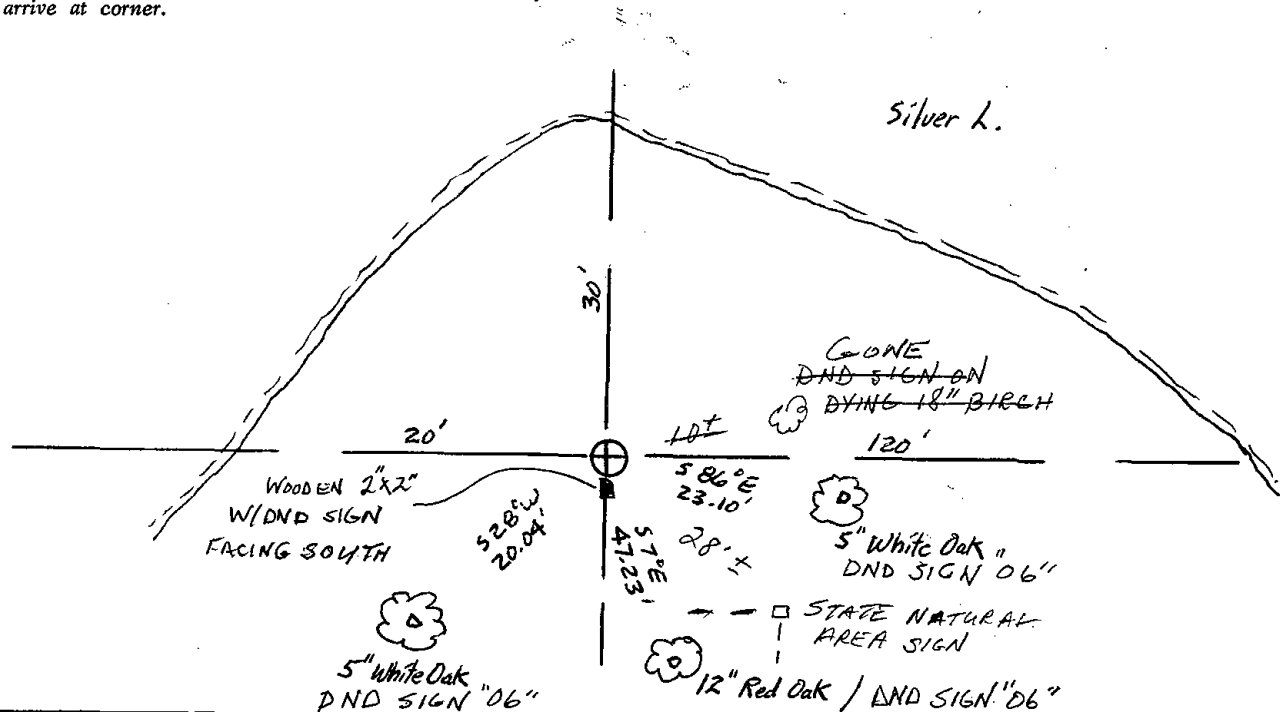 arrive at corner.
Silver L.
30'
GONE
DND SIGN ON
DYING 18" BIRCH
20'
10±
120'
S 86°E
23.10'
WOODEN 2"x2"
W/DND SIGN
FACING SOUTH
S28°W
20.04'
S7°E
47.23'
28'±
5" White Oak
DND SIGN "06"
STATE NATURAL
AREA SIGN
5" White Oak
DND SIGN "06"
12" Red Oak / DND SIGN "06"